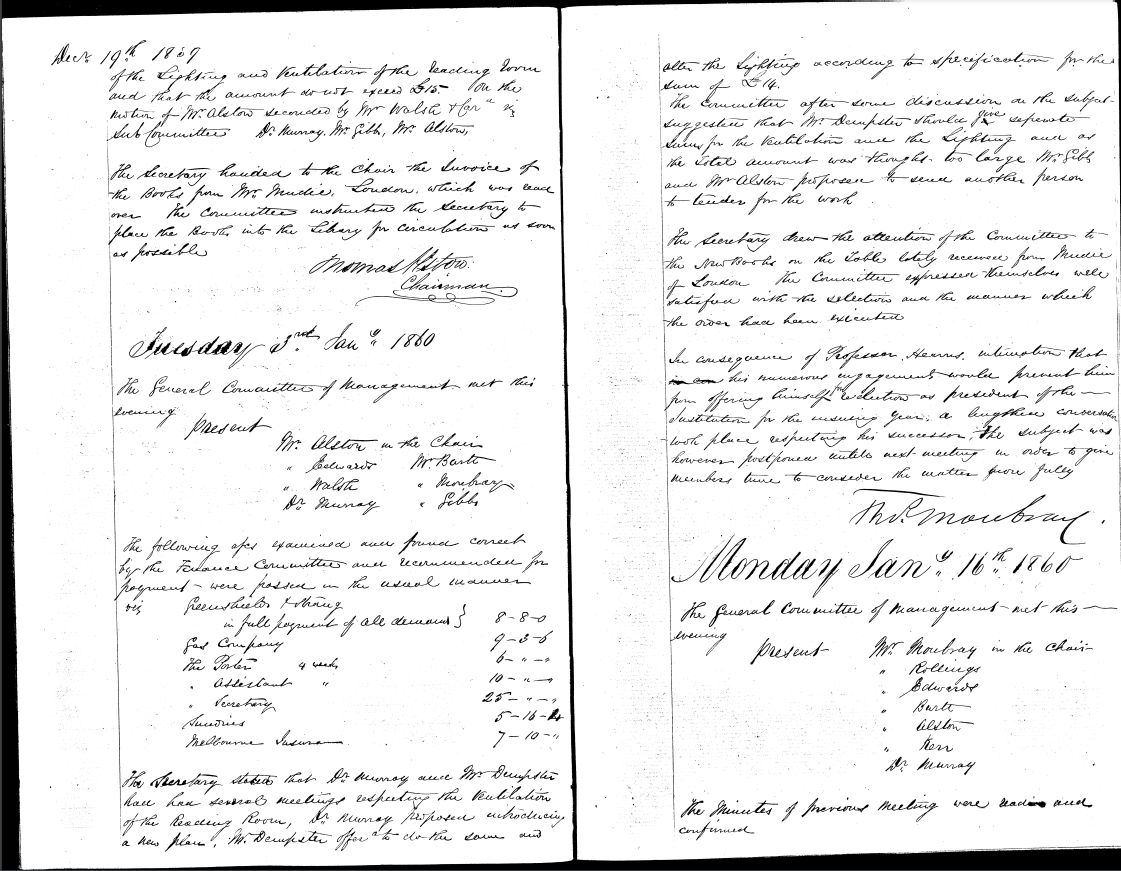 Decr 19th 1859
of the Lighting and Ventilation of the reading room
and that the amount do not exceed £15. On the
motion of Mr Alston seconded by Mr Walsh & Carrd viz
Sub Committee Dr Murray, Mr Gibb, Mr Alston,
The Secretary handed to the Chair the Invoice of
the Books from Mr Mudie, London, which was read
over The Committee instructed the Secretary to
place the Books into the Libary for circulation as soon
as possible
Thomas Alston
Chairman
Tuesday 3rd Jany 1860
The General Committee of Management met this
evening
Present
Mr Alston in the Chair
" Edwards Mr Barth
" Walsh " Moubray
Dr Murray " Gibbs
The following a/cs examined and found correct
by the Finance Committee and recommended for
payment - were passed in the usual manner
viz Greenshields & Strang
in full payment of all demands } 8-8-0
Gas Company 9-3-6
The Porter 4 weeks 6-"-"
" Assistant " 10-"-"
" Secretary 25-"-"
Sundries 5-16-
Melbourne Insuran 7-10-"
The Secretary stated that Dr Murray and Mr Dempster
had had several meetings respecting the Ventilation
of the Reading Room, Dr Murray proposed introducing
a new plan, Mr Dempster offerd to do the same and
alter the Lighting according to specification for the
sum of £14.
The Committee after some discussion on the subject
suggested that Mr Dempster should give seperate
sums for the Ventilation and the Lighting and as
the total amount was thought too large Mr Gibb
and Mr Alston proposed to send another person
to tender for the work
The Secretary drew the attention of the Committee to
the New Books on the Table lately received from Mudie
of London The Committee expressed themselves well
satisfied with the selection and the manner which
the order had been executed
In consequence of Professor Hearns, intimation that
his numerous engagements would prevent him
from offering himself for election as president of the
Institution for the ensuing year, a lengthen conversation
took place respecting his successor, The subject was
however postponed until next meeting in order to give
members time to consider the matter more fully
Thos. Moubray.
Monday Jany 16th 1860
The General Committee of Management met this
evening
Present Mr Moubray in the Chair
" Rollings
" Edwards
" Barth
" Alston
" Kerr
Dr Murray
The Minutes of previous meeting were read and
confirmed